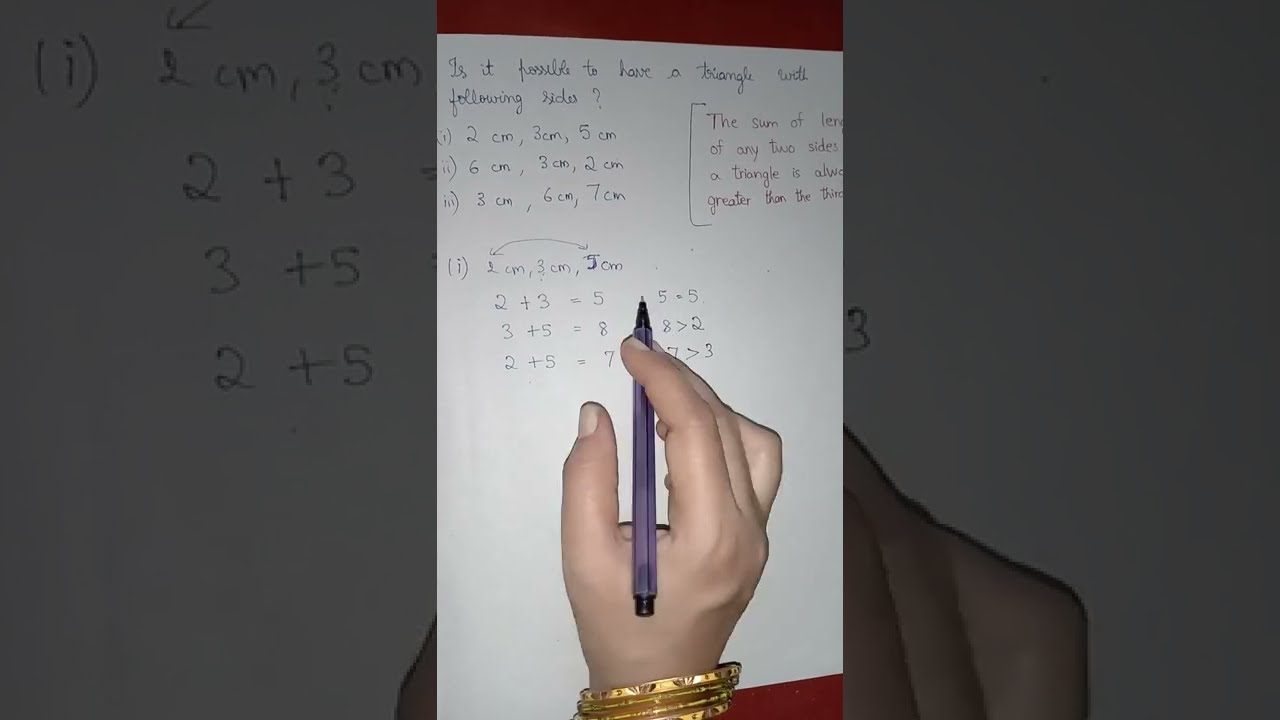 Is it possible to have a triangle with
following sides ?
i) 2 cm, 3cm, 5 cm
ii) 6 cm, 3 cm, 2 cm
iii) 3 cm, 6 cm, 7 cm
The sum of
of any two sides
a triangle is
greater than the
(i) 2 cm, 3 cm, 5 cm
2 + 3 = 5 5 = 5
3 + 5 = 8 8 > 2
2 + 5 = 7 7 > 3
(i) 2 cm, 3 cm
2 + 3 =
3 + 5 =
2 + 5
3